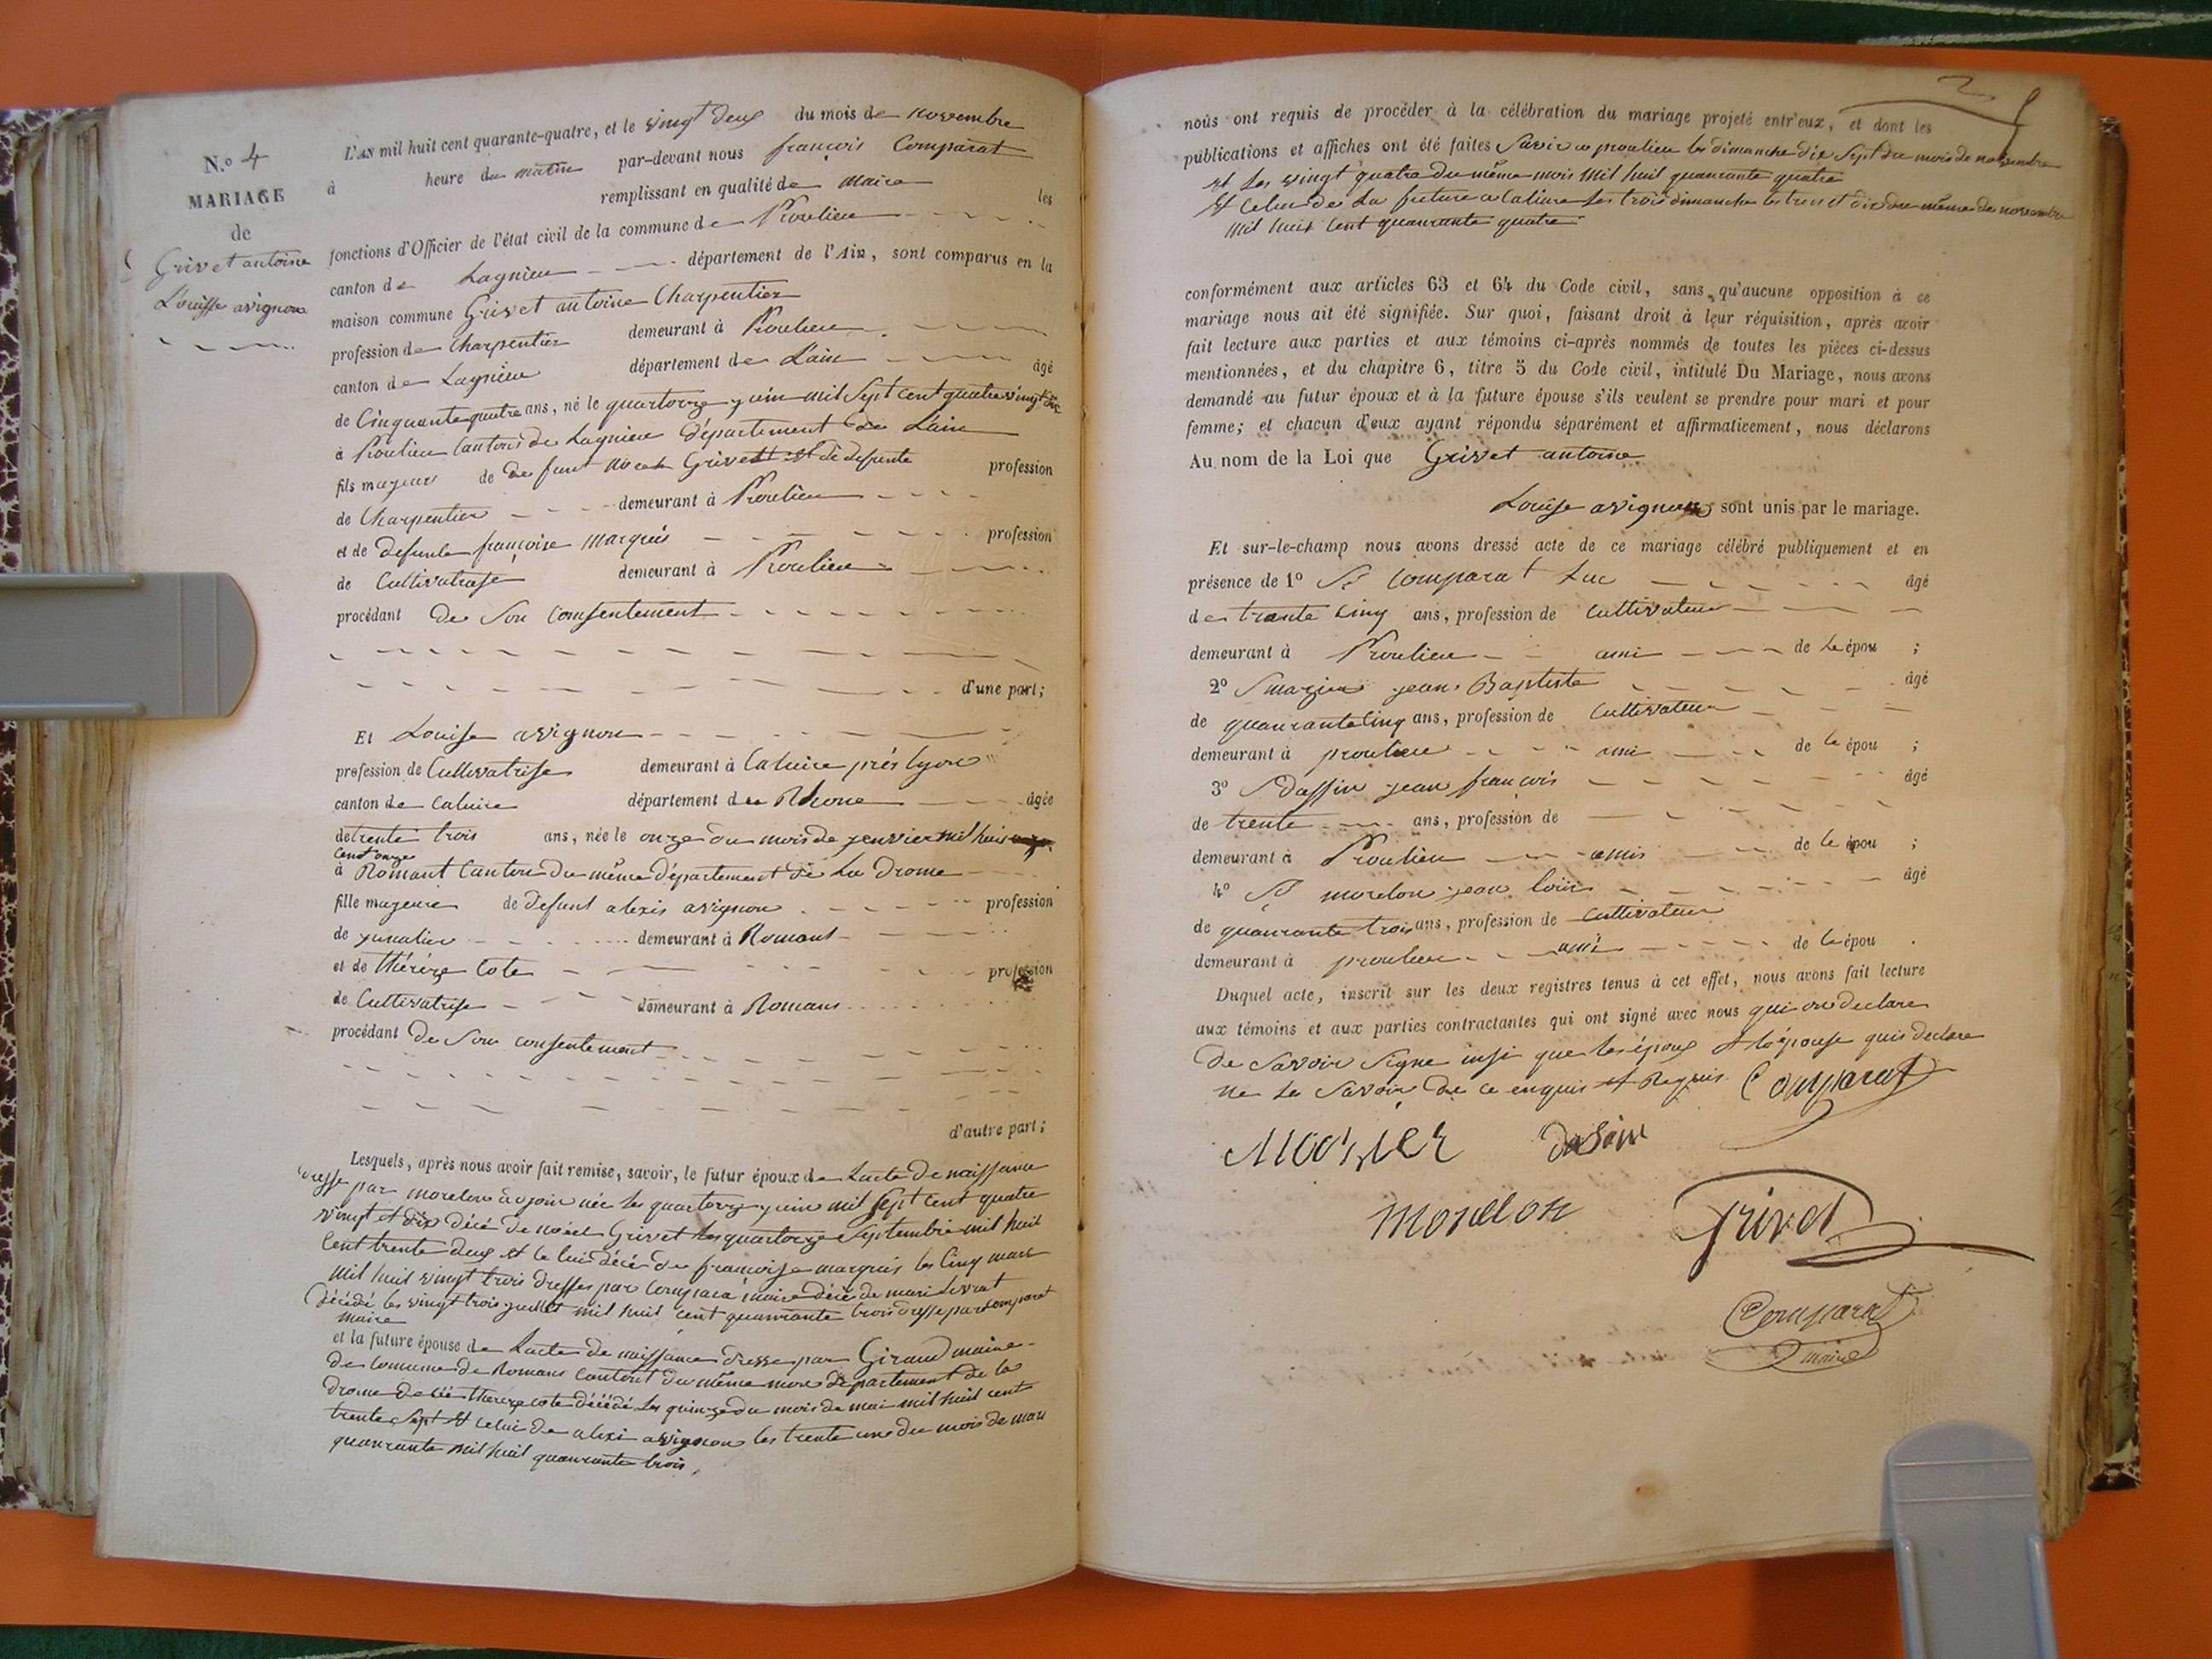 N.o 4
MARIAGE
de
Grivet antoine
Louisse avignon
L'AN mil huit cent quarante-quatre, et le vingt deux du mois de novembre
à heure du matin par-devant nous françois Comparat
remplissant en qualité de maire les
fonctions d'Officier de l'état civil de la commune de Proulieu
canton de Lagnieu département de l'Ain, sont comparus en la
maison commune Grivet antoine Charpentier
profession de Charpentier demeurant à Proulieu
canton de Lagnieu département de L'ain âgé
de Cinquante quatre ans, né le quartorze juin mil Sept cent quatre vingt dix
à Proulieu Canton de Lagnieu département de Lain
fils majeur de de funt Grivet et de defunte profession
de Charpentier demeurant à Proulieu
et de defunte françoise marquis profession
de Cultivatrise demeurant à Proulieu
procédant de Son Consentement
d'une part;
Et Louise avignon
profession de Cultivatrise demeurant à Caluire près lyon
canton de Caluire département du Rhone âgée
de trente trois ans, née le onze du mois de jenvier mil huit
cent onze
à Romant Canton du même département de La Drome
fille majeure de defunt alexis avignon profession
de demeurant à Romans
et de thérèze Cote profession
de Cultivatrise demeurant à Romans
procédant de Son consentement
d'autre part;
Lesquels, après nous avoir fait remise, savoir, le futur époux de Lacte de naissance
dresse par morelon adjoin née les quartorze juin mil Sept cent quatre
vingt et dix décé de noéel Grivet les quartorze Septembre mil huit
Cent trente deux et ce lui décé de francoise marquis les Cinq mars
mil huit vingt trois dresses par Compara maire décé de mari Livrat
décédé les vingt trois juillet mil huit cent quanrante trois dresse par Comparat
maire
et la future épouse de Lacte de naissance dresse par Giraud maire
de Comune de Romans Cantont du même nom département de la
drome de cé thereze cote décédé les quinze du mois de mai mil huit cent
trente Sept et celui de alexi avignon les trente une du mois de mars
quanrante mil huit quanrante trois
nous ont requis de procéder à la célébration du mariage projeté entr'eux, et dont les
publications et affiches ont été faites Savoir a proulieu les dimanche dix Sept du mois de novembre
et les vingt quatre du même mois mil huit quanrante quatre
et Celui de La future a Caluire les trois dimanche les trois et dix du même de novembre
mil huit Cent quanrante quatre
conformément aux articles 63 et 64 du Code civil, sans qu'aucune opposition à ce
mariage nous ait été signifiée. Sur quoi, faisant droit à leur réquisition, après avoir
fait lecture aux parties et aux témoins ci-après nommés de toutes les pièces ci-dessus
mentionnées, et du chapitre 6, titre 5 du Code civil, intitulé Du Mariage, nous avons
demandé au futur époux et à la future épouse s'ils veulent se prendre pour mari et pour
femme; et chacun d'eux ayant répondu séparément et affirmativement, nous déclarons
Au nom de la Loi que Grivet antoine
Louise avignon sont unis par le mariage.
Et sur-le-champ nous avons dressé acte de ce mariage célébré publiquement et en
présence de 1o Sr Comparat Luc âgé
de trante Cinq ans, profession de Cultivateur
demeurant à Proulieu ami de Le épou ;
2o jean Baptiste âgé
de quanrante Cinq ans, profession de Cultivateur
demeurant à proulieu ami de le épou ;
3o S dassin jean françois âgé
de trente ans, profession de
demeurant à Proulieu amis de le épou ;
4o Sr morelon jean louis âgé
de quanrante trois ans, profession de Cultivateur
demeurant à proulieu ami de le épou
Duquel acte, inscrit sur les deux registres tenus à cet effet, nous avons fait lecture
aux témoins et aux parties contractantes qui ont signé avec nous qui on declare
de Savoir Signe insi que les époux et lépouse quis declare
ne le Savoir de ce enquis et Requis Comparat
dasin
Morelon Grivet
Comparat
maire